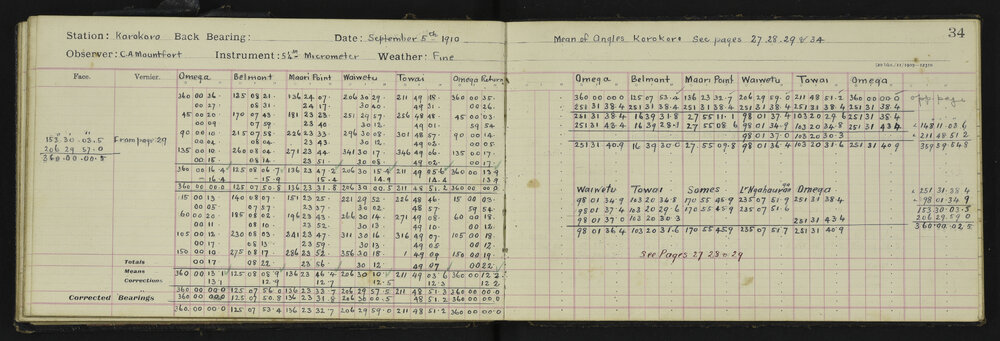 Station: Korokoro Back Bearing: Date: September 5th 1910
Observer: C.A Mountfort Instrument: 5½in Micrometer Weather: Fine
Face. Vernier. Omega Belmont Maori Point Waiwetu Towai Omega Return
360 00 36. 125 08 21. 136 24 07. 206 30 29. 211 49 18. 360 00 35.
00 27. 08 31. 24 17. 30 40. 49 31. 00 26.
45 00 20. 170 07 43. 181 23 23. 251 29 57. 256 48 45. 45 00 03.
00 09. 07 59. 23 40. 30 12. 49 01. 59 54
153. 30. 03.5
206 29. 57. 0
360. 00. 00. 5
From page 29
90 00 10. 215 07 58. 226 23 33. 296 30 08. 301 48 57. 90 00 14.
00 04. 08 04. 23 43. 30 12. 49 02. 00 05.
135 00 12. 260 08 04. 271 23 44. 341 30 17. 346 49 06. 135 00 17.
00 15. 08 14. 23 51. 30 08. 49 02. 00 17.
360 00 16.4 125 08 06.7 136 23 47.2 206 30 15.4 211 49 05.6 360 00 13.9
- 16.4 - 15.9 15.4 14.9 14.4 13.9
360 00 00.0 125 07 50.8 136 23 31.8 206 30 00.5 211 48 51.2 360 00 00.0
15 00 13. 140 08 07. 151 23 25. 221 29 52. 226 48 46. 15 00 03.
00 05. 07 57. 23 37. 30 02. 48 57. 59 54.
60 00 20. 185 08 02. 196 23 43. 266 30 14. 271 49 08. 60 00 18.
00 11. 08 10. 23 52. 30 13. 49 10. 00 12.
105 00 12. 230 08 03. 241 23 47. 311 30 16. 316 49 07. 105 00 18.
00 17. 08 13. 23 59. 30 13. 49 05. 00 12.
150 00 10. 275 08 17. 286 23 52. 356 30 18. 1 49 09. 150 00 19.
Totals 00 17. 08 22. 23 56. 30 12. 49 07. 00 22.
Means 360 00 13.1 125 08 08.9 136 23 46.4 206 30 10.0 211 49 03.6 360 00 12.2
Corrections 13.1 12.9 12.7 12.5 12.3 12.2
360 00 00.0 125 07 56.0 136 23 33.7 206 29 57.5 211 48 51.3 360 00 00.0
Corrected Bearings 360 00 00.0 125 07 50.8 136 23 31.8 206 30 00.5 48 51.2 360 00 00.0
360 00 00.0 125 07 53.4 136 23 32.7 206 29 59.0 211 48 51.2 360 00 00.0
Mean of Angles Korokoro See pages 27. 28. 29 & 34
34
Omega Belmont Maori Point Waiwetu Towai Omega
360 00 00.0 125 07 53.4 136 23 32.7 206 29 59.0 211 48 51.2 360 00 00.0 opp. page
251 31 38.4 251 31 38.4 251 31 38.4 251 31 38.4 251 31 38.4 251 31 38.4
251 31 38.4 16 39 31.8 27 55 11.1 98 01 37.4 103 20 29.6 251 31 38.4
251 31 43.4 16 39 28.1 27 55 08.6 98 01 34.9 103 20 34.8 251 31 43.4 148 11 03.6
98 01 37.0 103 20 30.3 211 48 51.2
251 31 40.9 16 39 30.0 27 55 09.8 98 01 36.4 103 20 31.6 251 31 40.9 359 59 54.8
Waiwetu Towai Somes Lr Ngahauranga Omega
98 01 34.9 103 20 34.8 170 55 45.9 235 07 51.7 251 31 38.4
98 01 37.4 103 20 29.6 170 55 45.9 235 07 51.6
98 01 37.0 103 20 30.3 251 31 43.4
98 01 36.4 103 20 31.6 170 55 45.9 235 07 51.7 251 31 40.9
251 31 38.4
98 01 34.9
153 30 03.5
206 29 59.0
360 00 02.5
See Pages 27 28 & 29